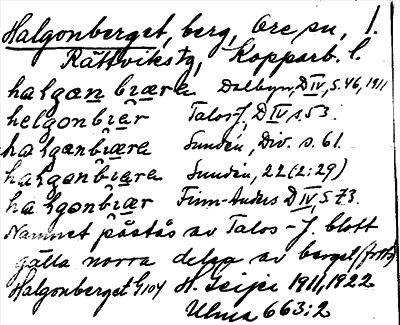 Halgonberget, berg, Ore sn, 1.
Rättviks tg, Kopparb. l.
halgan biæra Dalbyn, D IV, s. 46, 1911
helgonbiær Talos J, D IV s. 53.
halganbiæra Sundin, Div. s. 61.
halganbiæra Sundin, 22 (2:29)
halgonbiær Finn-Anders D IV s. 73.
Namnet påstås av Talos-J. blott
gälla norra delen av berget (forts)
Halgonberget G104 H. Geijer 1911, 1922
Ulma 663:2